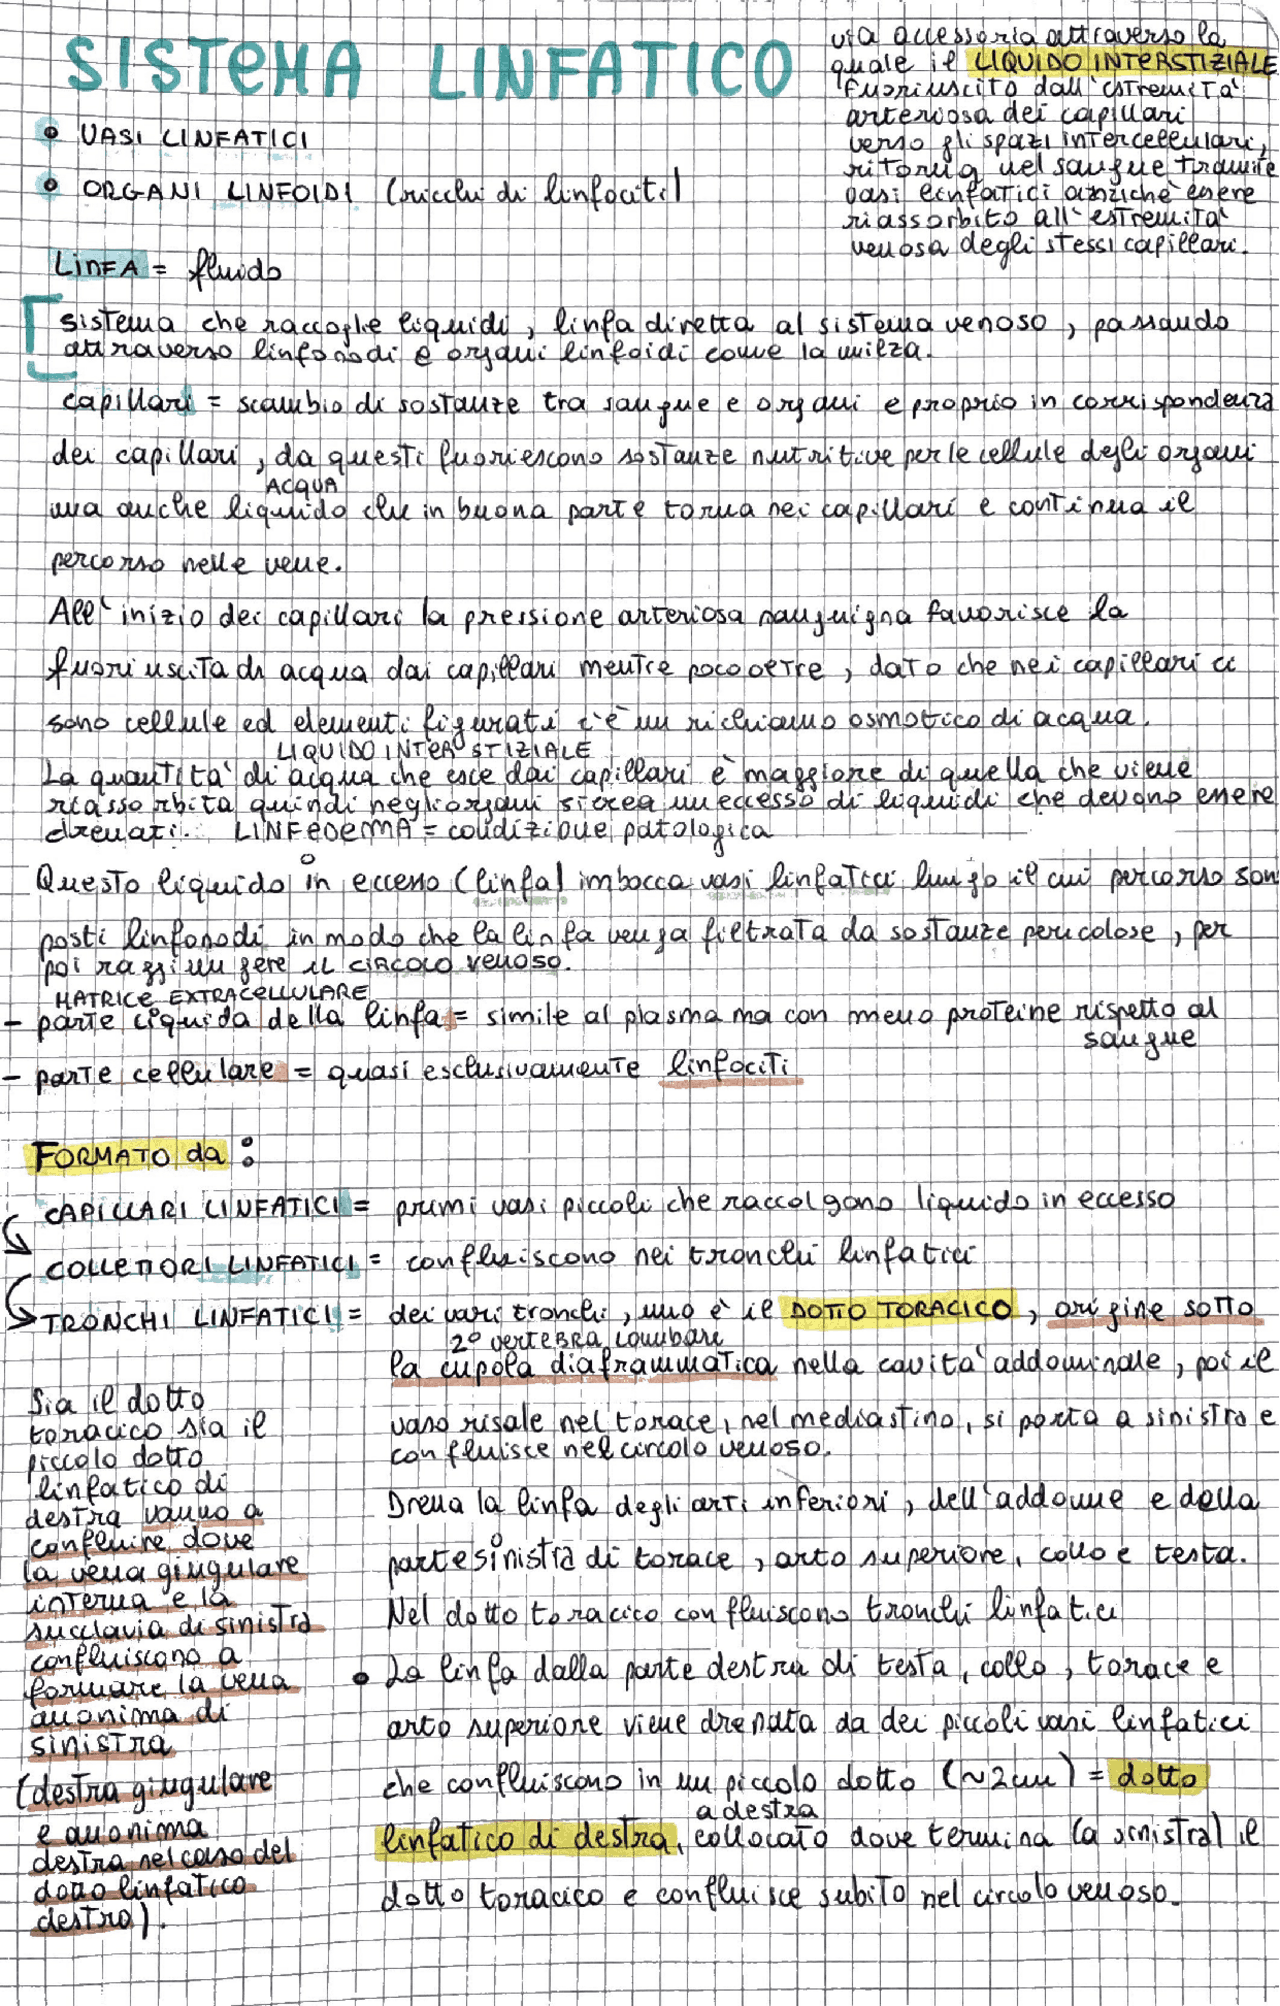 SISTEMA LINFATICO
via accessoria attraverso la
quale il LIQUIDO INTERSTIZIALE
fuoriuscito dall'estremità
arteriosa dei capillari
verso gli spazi intercellulari,
ritorna nel sangue tramite
vasi linfatici anziché essere
riassorbito all'estremità
venosa degli stessi capillari.
• VASI LINFATICI
• ORGANI LINFOIDI (ricchi di linfociti)
LINFA = fluido
sistema che raccoglie liquidi, linfa diretta al sistema venoso, passando
attraverso linfonodi e organi linfoidi come la milza.
capillari = scambio di sostanze tra sangue e organi e proprio in corrispondenza
dei capillari, da questi fuoriescono sostanze nutritive per le cellule degli organi
ACQUA
ma anche liquido che in buona parte torna nei capillari e continua il
percorso nelle vene.
All'inizio dei capillari la pressione arteriosa sanguigna favorisce la
fuoriuscita di acqua dai capillari mentre poco oltre, dato che nei capillari ci
sono cellule ed elementi figurati c'è un richiamo osmotico di acqua.
LIQUIDO INTERSTIZIALE
La quantità di acqua che esce dai capillari è maggiore di quella che viene
riassorbita quindi negli organi si crea un eccesso di liquidi che devono essere
drenati. LINFEDEMA = condizione patologica
Questo liquido in eccesso (linfa) imbocca vasi linfatici lungo il cui percorso son
posti linfonodi in modo che la linfa venga filtrata da sostanze pericolose, per
poi raggiungere il CIRCOLO VENOSO.
MATRICE EXTRACELLULARE
- parte liquida della linfa = simile al plasma ma con meno proteine rispetto al
sangue
- parte cellulare = quasi esclusivamente linfociti
FORMATO da :
CAPILLARI LINFATICI = primi vasi piccoli che raccolgono liquido in eccesso
COLLETTORI LINFATICI = confluiscono nei tronchi linfatici
TRONCHI LINFATICI = dei vari tronchi, uno è il DOTTO TORACICO, origine sotto
2° vertebra lombare
la cupola diaframmatica nella cavità addominale, poi il
vaso risale nel torace, nel mediastino, si porta a sinistra e
confluisce nel circolo venoso.
Drena la linfa degli arti inferiori, dell'addome e della
parte sinistra di torace, arto superiore, collo e testa.
Nel dotto toracico confluiscono tronchi linfatici
• La linfa dalla parte destra di testa, collo, torace e
arto superiore viene drenata da dei piccoli vasi linfatici
che confluiscono in un piccolo dotto (~2cm) = dotto
a destra
linfatico di destra, collocato dove termina (a sinistra) il
dotto toracico e confluisce subito nel circolo venoso.
Sia il dotto
toracico sia il
piccolo dotto
linfatico di
destra vanno a
confluire dove
la vena giugulare
interna e la
succlavia di sinistra
confluiscono a
formare la vena
anonima di
sinistra
(destra giugulare
e anonima
destra nel caso del
dotto linfatico
destro).